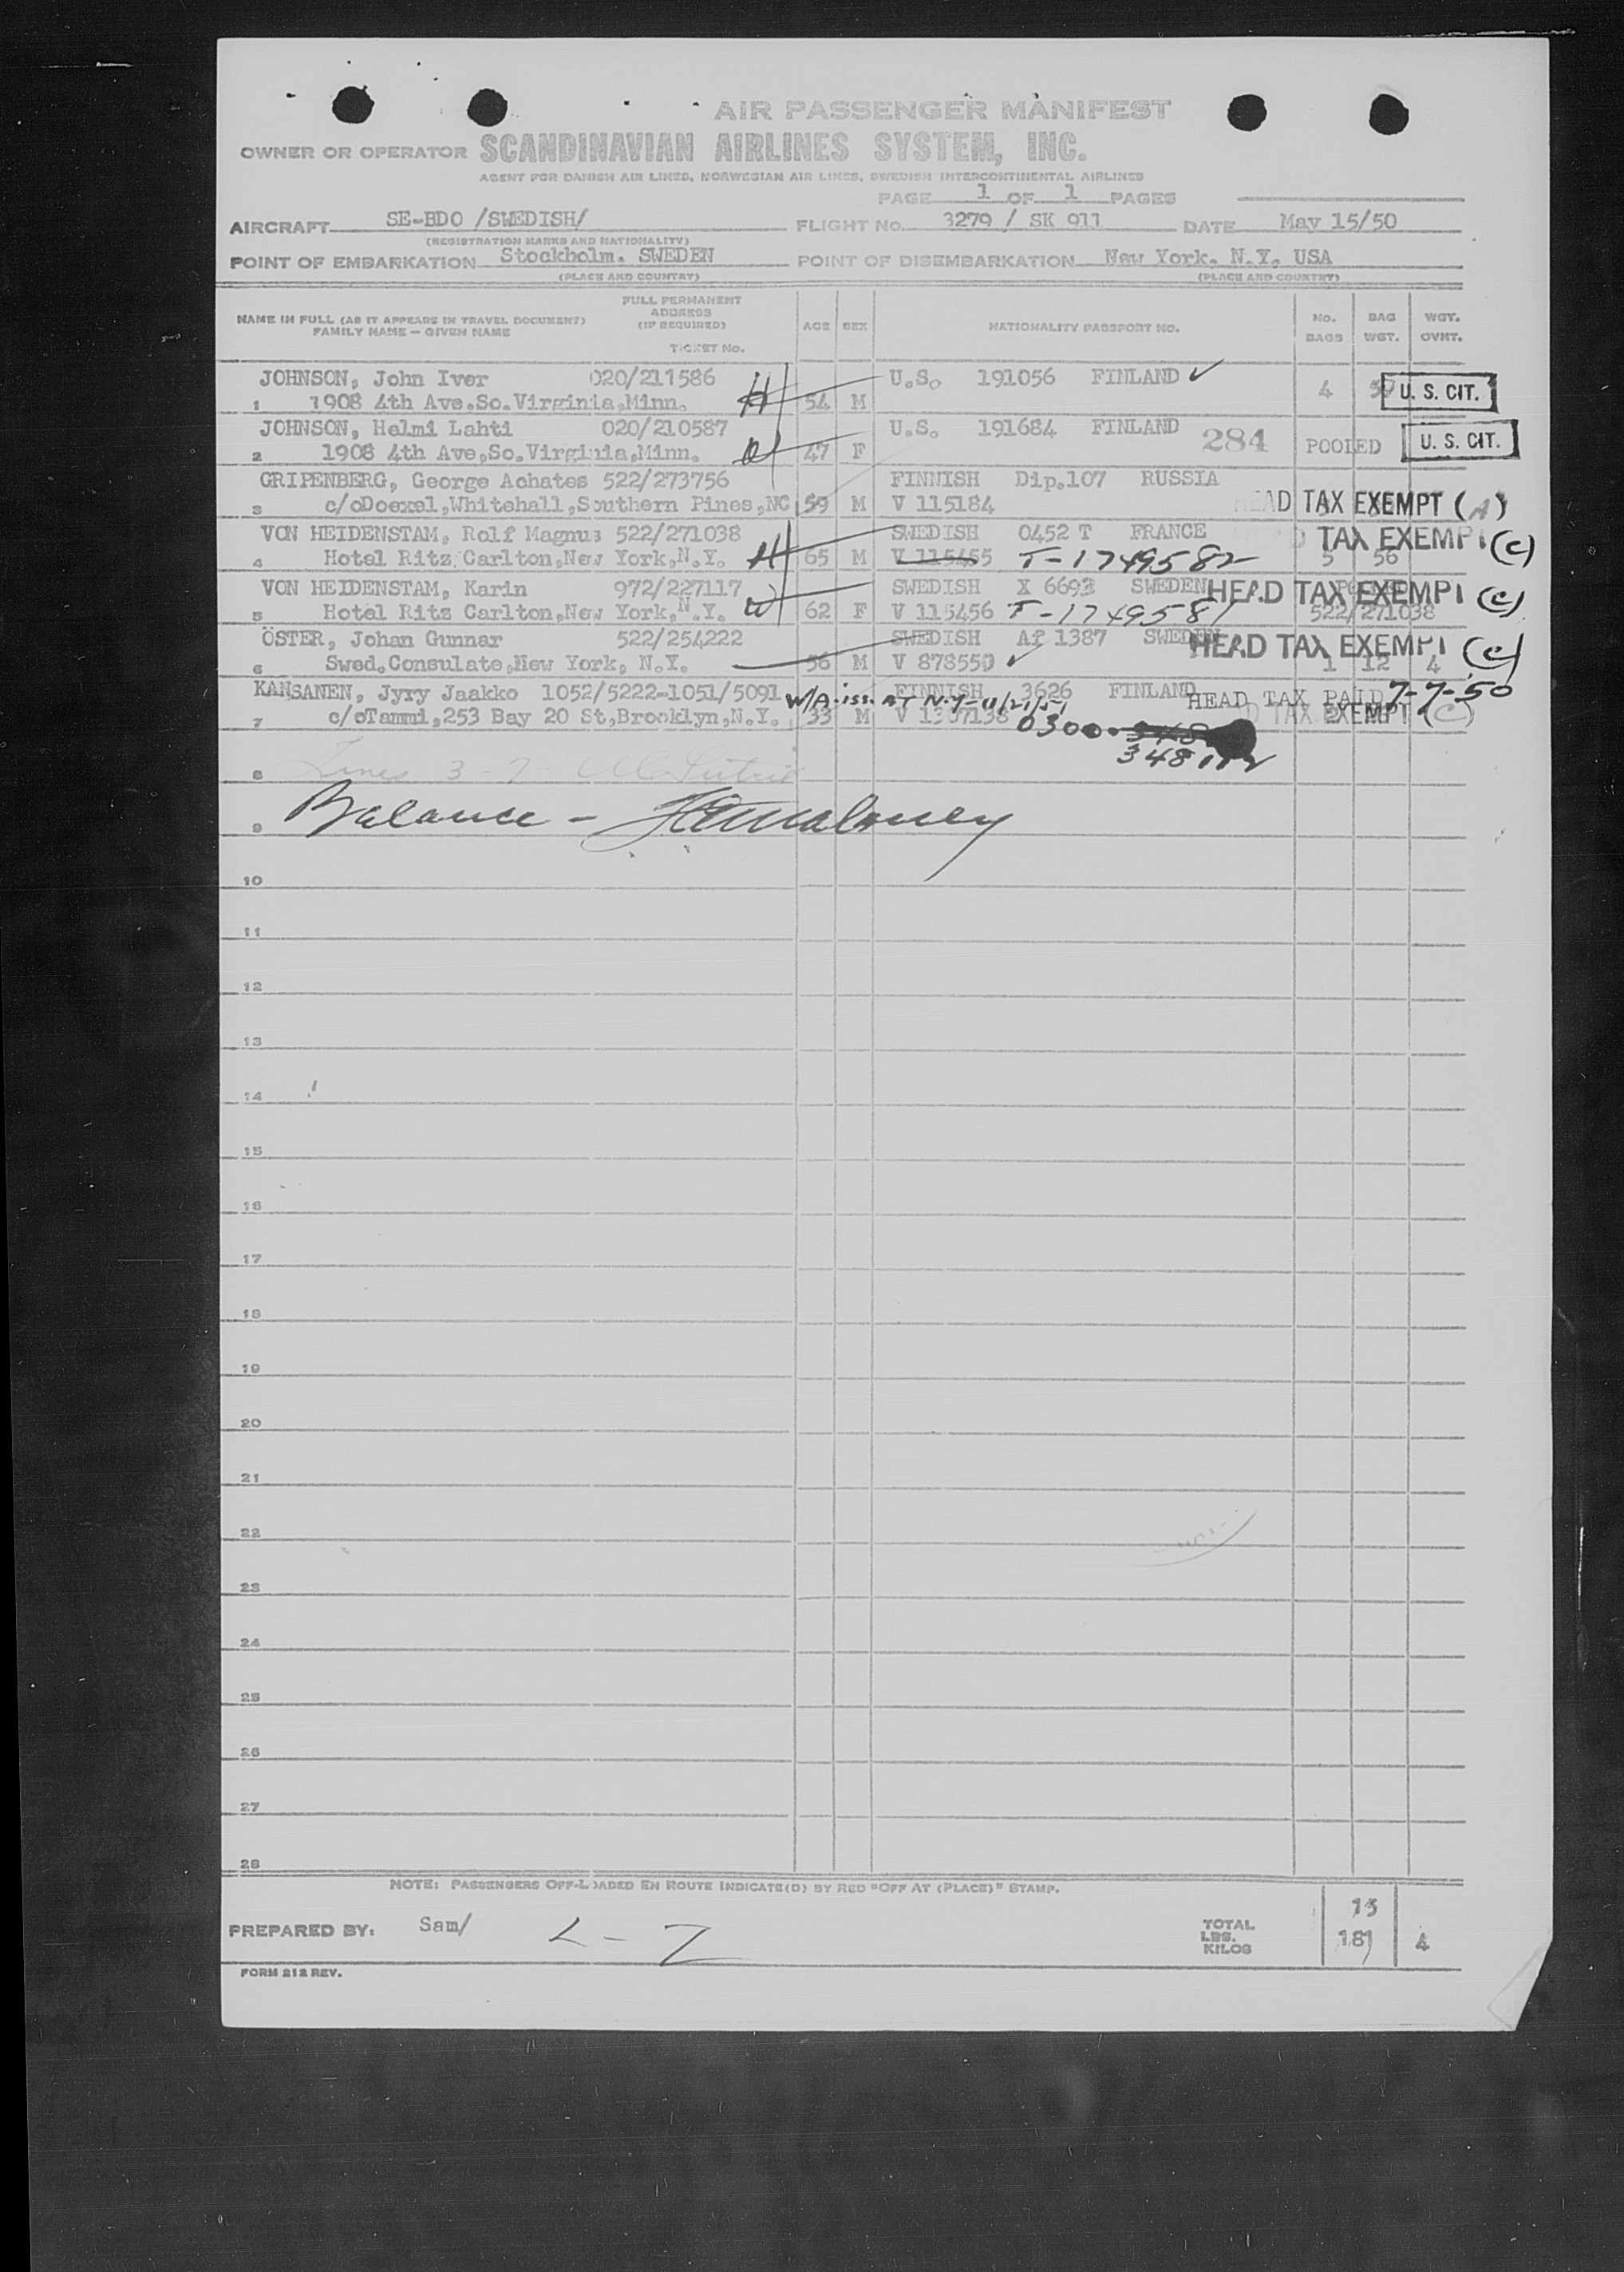 AIR PASSENGER MANIFEST
OWNER OR OPERATOR SCANDINAVIAN AIRLINES SYSTEM, INC.
AGENT FOR DANISH AIR LINES, NORWEGIAN AIR LINES, SWEDISH INTERCONTINENTAL AIRLINES
PAGE 1 OF 1 PAGES
AIRCRAFT SE-BDO /SWEDISH/ FLIGHT No. 3279 / SK 911 DATE May 15/50
(REGISTRATION MARKS AND NATIONALITY)
POINT OF EMBARKATION Stockholm. SWEDEN POINT OF DISEMBARKATION New York. N.Y. USA
(PLACE AND COUNTRY) (PLACE AND COUNTRY)
NAME IN FULL (AS IT APPEARS IN TRAVEL DOCUMENT) FAMILY NAME — GIVEN NAME FULL PERMANENT ADDRESS (IF REQUIRED) TICKET No. AGE SEX NATIONALITY PASSPORT NO. No. BAGS BAG WGT. WGT. OVHT.
JOHNSON, John Iver 020/211586 U.S. 191056 FINLAND ✓
1 1908 4th Ave.So.Virginia,Minn. H 54 M 4 U. S. CIT.
JOHNSON, Helmi Lahti 020/210587 U.S. 191684 FINLAND 284
2 1908 4th Ave,So.Virginia,Minn. W 47 F POOLED U. S. CIT.
GRIPENBERG, George Achates 522/273756 FINNISH Dip.107 RUSSIA
3 c/oDoexel,Whitehall,Southern Pines,NC 59 M V 115184 HEAD TAX EXEMPT (A)
VON HEIDENSTAM, Rolf Magnus 522/271038 SWEDISH 0452 T FRANCE TAX EXEMPT (C)
4 Hotel Ritz Carlton,New York,N.Y. H 65 M V 115455 T-1749582 5 56
VON HEIDENSTAM, Karin 972/227117 SWEDISH X 6693 SWEDEN HEAD TAX EXEMPT (C)
5 Hotel Ritz Carlton,New York,N.Y. W 62 F V 115456 T-1749581 522/271038
ÖSTER, Johan Gunnar 522/254222 SWEDISH Af 1387 SWEDEN HEAD TAX EXEMPT (C)
6 Swed.Consulate,New York, N.Y. 56 M V 878550 ✓ 1 12 4
KANSANEN, Jyry Jaakko 1052/5222-1051/5091 W/A. iss. AT N.Y-11/21/51 FINNISH 3626 FINLAND HEAD TAX PAID 7-7-50
7 c/oTammi,253 Bay 20 St,Brooklyn,N.Y. 33 M V 1307138 0300. TAX EXEMPT (C)
348
8 Lines 3-7
9 Balance -
10
11
12
13
14
15
16
17
18
19
20
21
22
23
24
25
26
27
28
NOTE: PASSENGERS OFF-LOADED EN ROUTE INDICATE(D) BY RED "OFF AT (PLACE)" STAMP.
PREPARED BY: Sam/ L - Z TOTAL LBS. KILOS 15 181 4
FORM 212 REV.